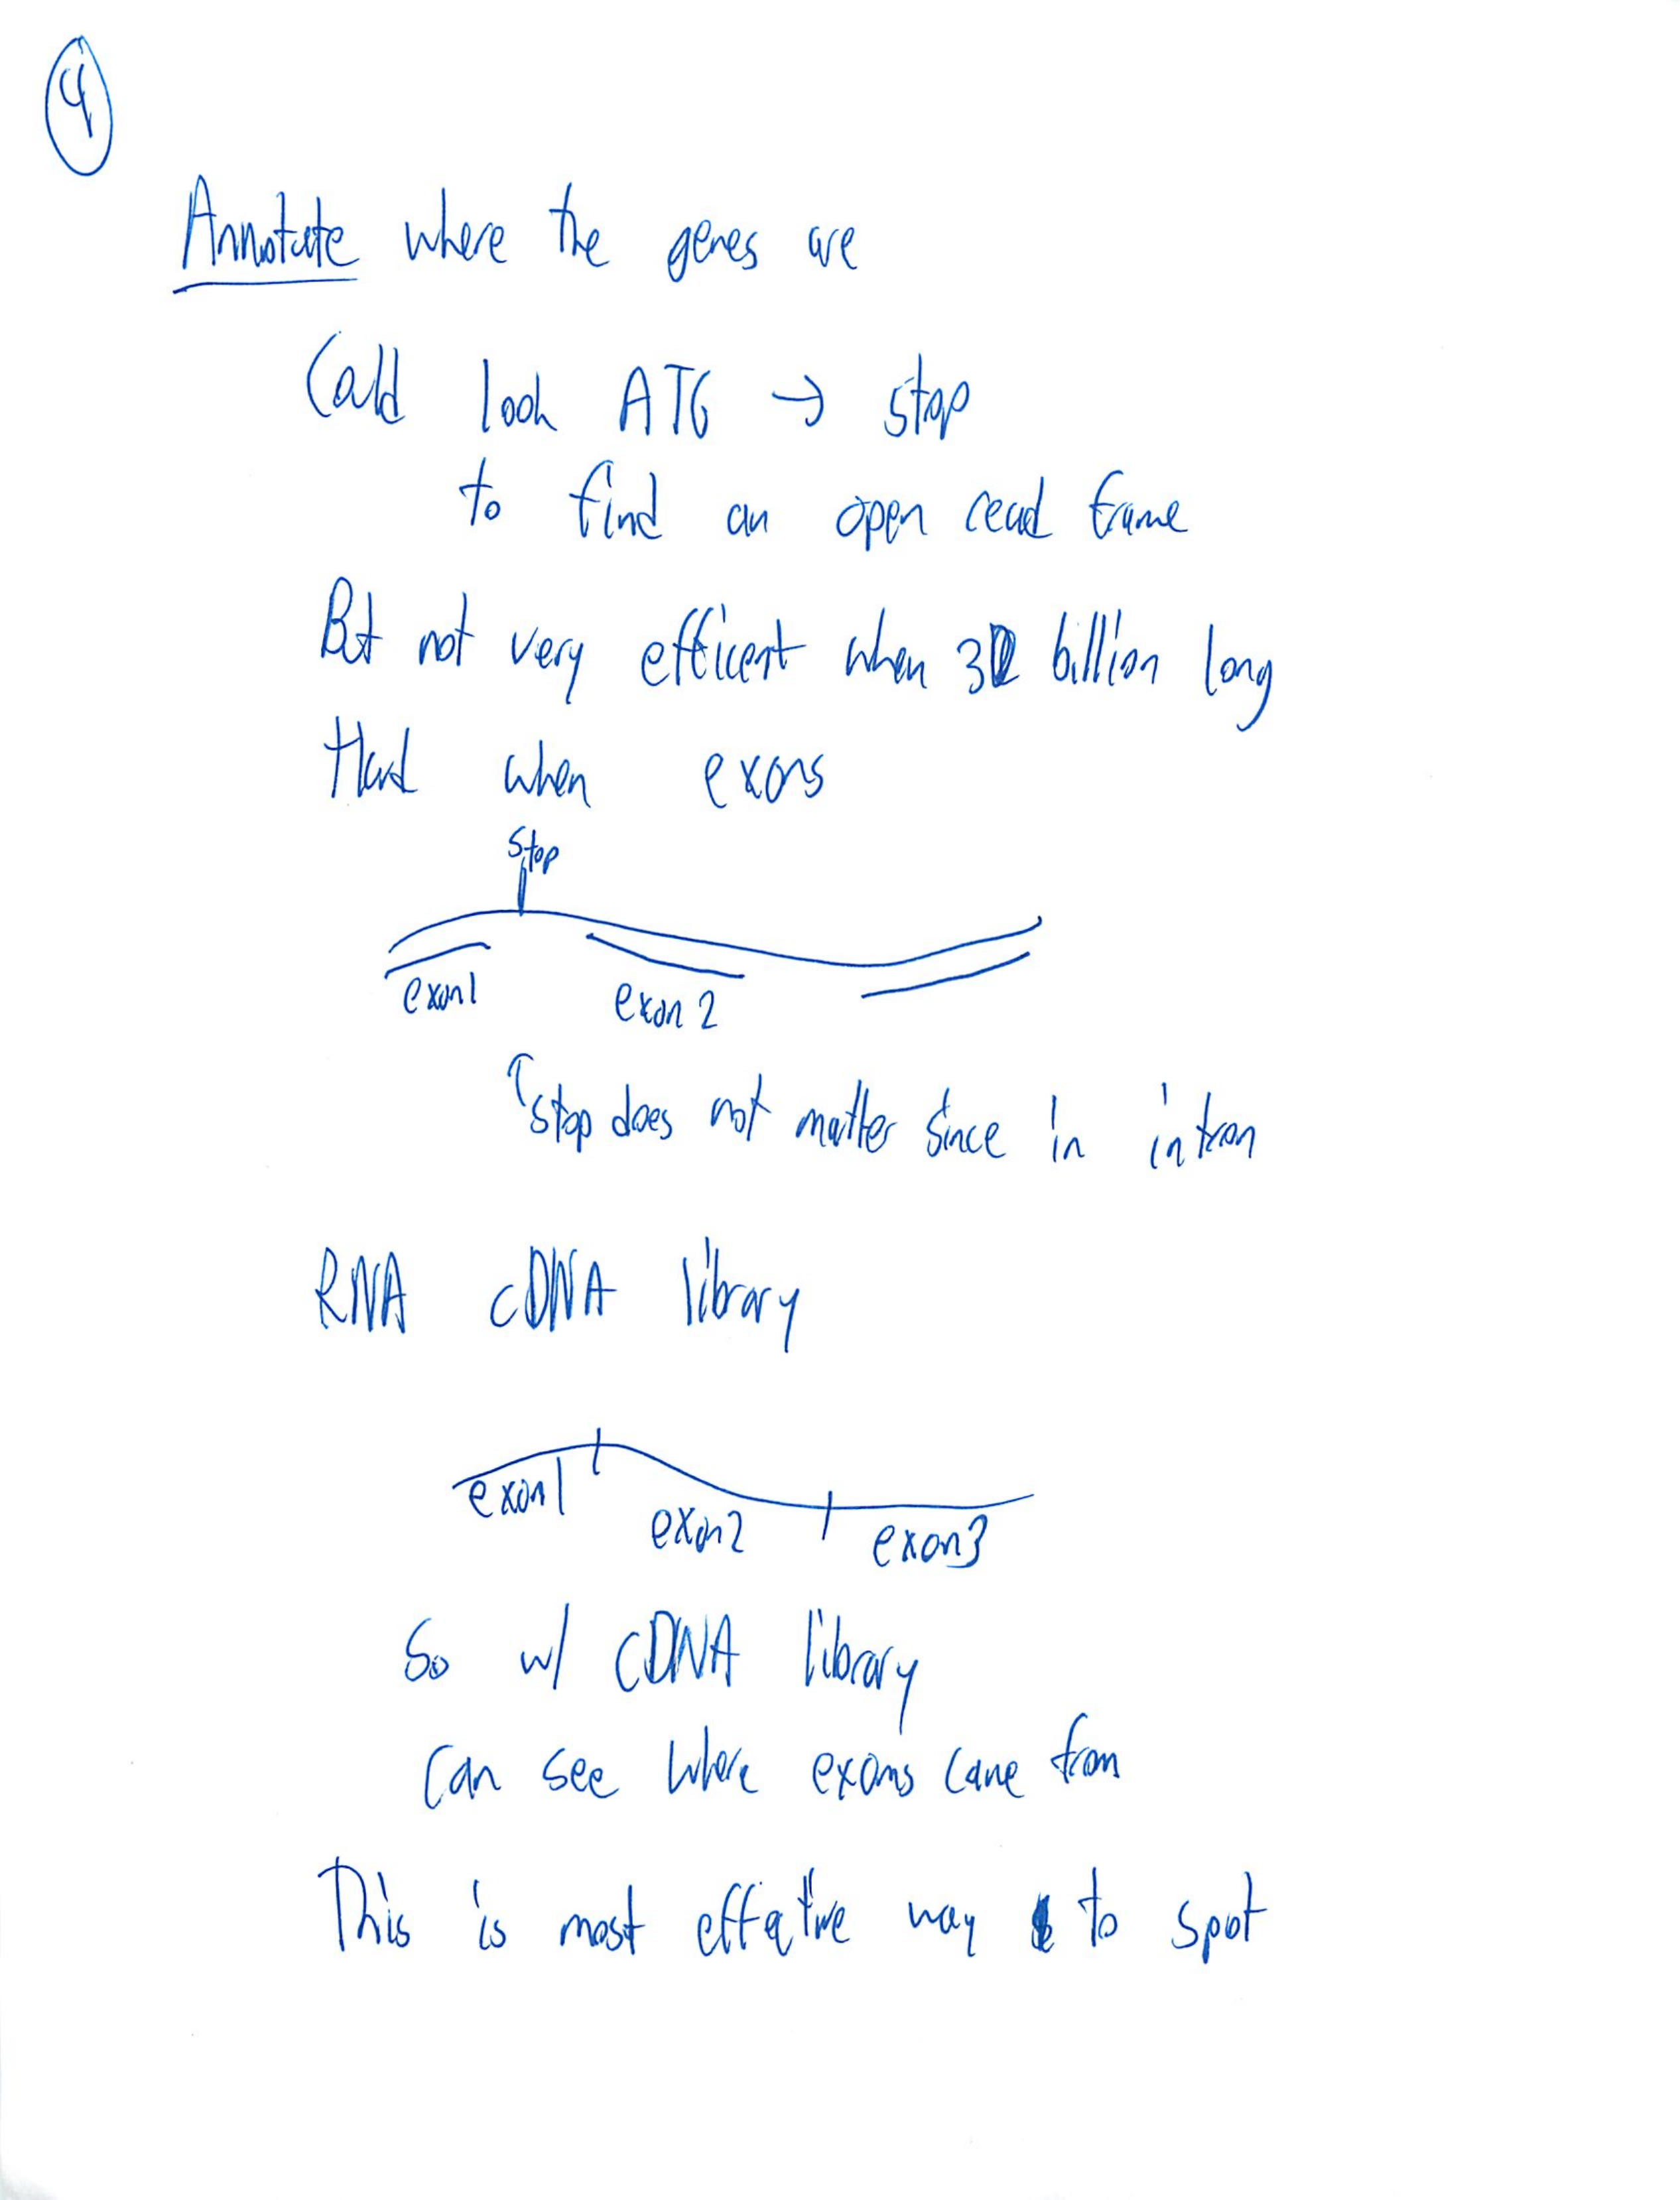 4
Annotate where the genes are
Could look ATG → stop
to find an open read frame
But not very efficent when 3 billion long
Hard when exons
stop
exon1
exon 2
↑stop does not matter since in intron
RNA cDNA library
exon1
exon2
exon3
So w/ cDNA library
can see where exons came from
This is most effective way to spot